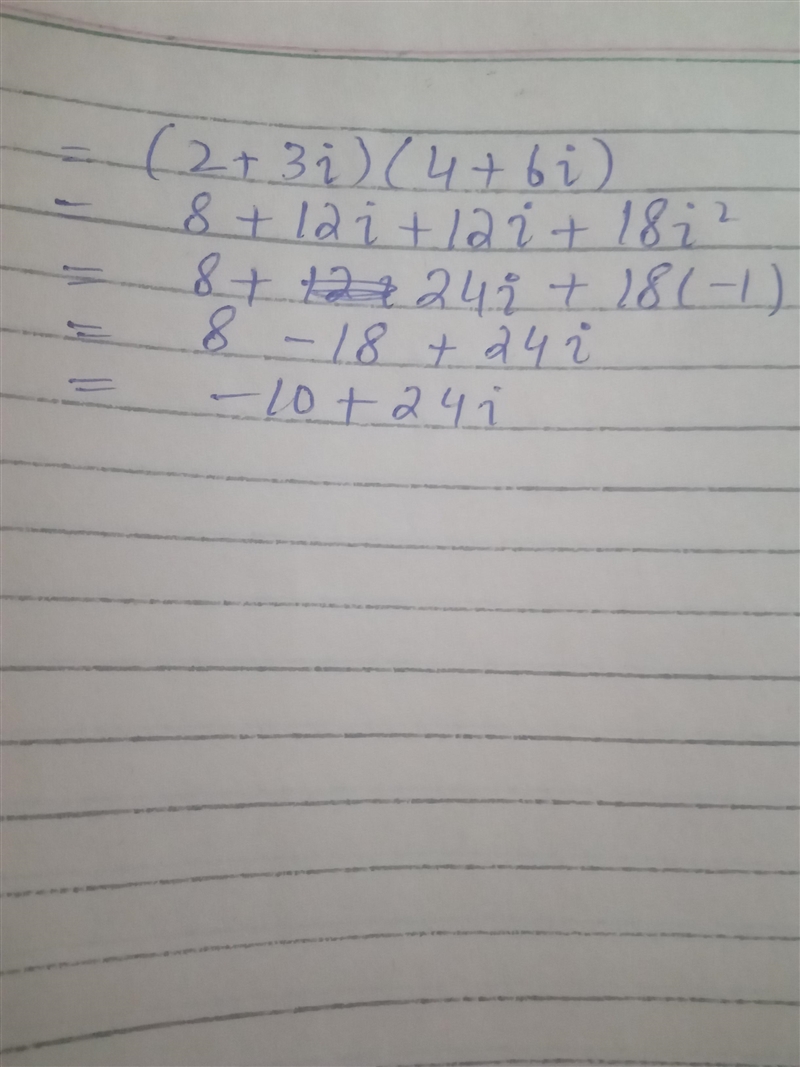 = (2 + 3i) (4 + 6i)
= 8 + 12i + 12i + 18i²
= 8 + 24i + 18(-1)
= 8 - 18 + 24i
= -10 + 24i